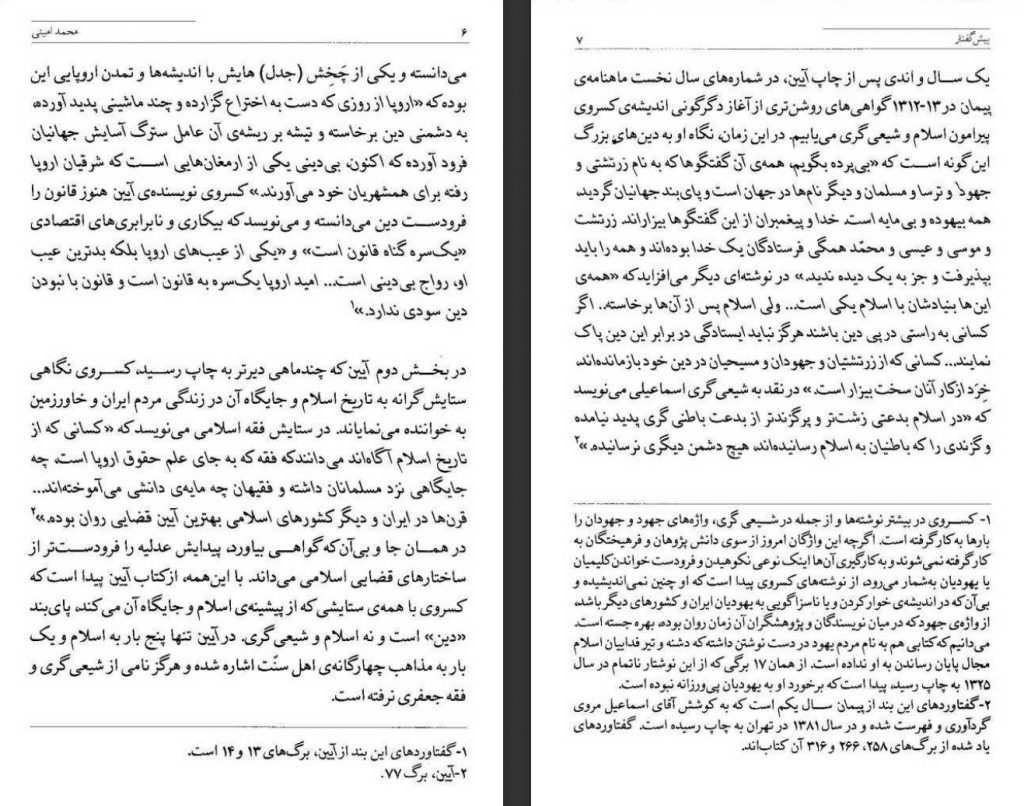 ۶
محمد امینی
می‌دانسته و یکی از چَخِش (جدل) هایش با اندیشه‌ها و تمدن اروپایی این
بوده که «اروپا از روزی که دست به اختراع گزارده و چند ماشینی پدید آورده،
به دشمنی دین برخاسته و تیشه بر ریشه‌ی آن عامل سترگ آسایش جهانیان
فرود آورده که اکنون، بی‌دینی یکی از ارمغان‌هایی است که شرقیان اروپا
رفته برای همشهریان خود می‌آورند.» کسروی نویسنده‌ی آیین هنوز قانون را
فرودست دین می‌دانسته و می‌نویسد که بیکاری و نابرابری‌های اقتصادی
«یک‌سره گناه قانون است» و «یکی از عیب‌های اروپا بلکه بدترین عیب
او، رواج بی‌دینی است... امید اروپا یک‌سره به قانون است و قانون با نبودن
دین سودی ندارد.»۱
در بخش دوم آیین که چندماهی دیرتر به چاپ رسید، کسروی نگاهی
ستایش‌گرانه به تاریخ اسلام و جایگاه آن در زندگی مردم ایران و خاورزمین
به خواننده می‌نمایاند. در ستایش فقه اسلامی می‌نویسد که «کسانی که از
تاریخ اسلام آگاه‌اند می‌دانند که فقه که به جای علم حقوق اروپا است، چه
جایگاهی نزد مسلمانان داشته و فقیهان چه مایه‌ی دانشی می‌آموخته‌اند...
قرن‌ها در ایران و دیگر کشورهای اسلامی بهترین آیین قضایی روان بوده.»۲
در همان جا و بی‌آن‌که گواهی بیاورد، پیدایش عدلیه را فرودست‌تر از
ساختارهای قضایی اسلامی می‌داند. با این‌همه، از کتاب آیین پیدا است که
کسروی با همه‌ی ستایشی که از پیشینه‌ی اسلام و جایگاه آن می‌کند، پای‌بند
«دین» است و نه اسلام و شیعی‌گری. در آیین تنها پنج بار به اسلام و یک
بار به مذاهب چهارگانه‌ی اهل سنّت اشاره شده و هرگز نامی از شیعی‌گری و
فقه جعفری نرفته است.
۱- گفتاوردهای این بند از آیین، برگ‌های ۱۳ و ۱۴ است.
۲- آیین، برگ ۷۷.
پیش‌گفتار
۷
یک سال و اندی پس از چاپ آیین، در شماره‌های سال نخست ماهنامه‌ی
پیمان در ۱۳-۱۳۱۲ گواهی‌های روشن‌تری از آغاز دگرگونی اندیشه‌ی کسروی
پیرامون اسلام و شیعی‌گری می‌یابیم. در این زمان، نگاه او به دین‌های بزرگ
این گونه است که «بی‌پرده بگویم، همه‌ی آن گفتگوها که به نام زرتشتی و
جهود۱ و ترسا و مسلمان و دیگر نام‌ها در جهان است و پای‌بند جهانیان گردید،
همه بیهوده و بی‌مایه است. خدا و پیغمبران از این گفتگوها بیزاراند. زرتشت
و موسی و عیسی و محمّد همگی فرستادگان یک خدا بوده‌اند و همه را باید
بپذیرفت و جز به یک دیده ندید.» در نوشته‌ای دیگر می‌افزاید که «همه‌ی
این‌ها بنیادشان با اسلام یکی است... ولی اسلام پس از آن‌ها برخاسته.. اگر
کسانی به راستی در پی دین باشند هرگز نباید ایستادگی در برابر این دین پاک
نمایند... کسانی که از زرتشتیان و جهودان و مسیحیان در دین خود بازمانده‌اند،
خِرَد از کار آنان سخت بیزار است.» در نقد به شیعی‌گری اسماعیلی می‌نویسد
که «در اسلام بدعتی زشت‌تر و پرگزندتر از بدعت باطنی گری پدید نیامده
و گزندی را که باطنیان به اسلام رسانیده‌اند، هیچ دشمن دیگری نرسانیده.»۲
۱- کسروی در بیشتر نوشته‌ها و از جمله در شیعی گری، واژه‌های جهود و جهودان را
بارها به کار گرفته است. اگرچه این واژگان امروز از سوی دانش پژوهان و فرهیختگان به
کار گرفته نمی‌شوند و به کارگیری آن‌ها اینک نوعی نکوهیدن و فرودست خواندن کلیمیان
یا یهودیان به‌شمار می‌رود، از نوشته‌های کسروی پیدا است که او چنین نمی‌اندیشیده و
بی‌آن‌که در اندیشه‌ی خوار کردن و یا ناسزاگویی به یهودیان ایران و کشورهای دیگر باشد،
از واژه‌ی جهود که در میان نویسندگان و پژوهشگران آن زمان روان بوده، بهره جسته است.
می‌دانیم که کتابی هم به نام مردم یهود در دست نوشتن داشته که دشنه و تیر فداییان اسلام
مجال پایان رساندن به او نداده است. از همان ۱۷ برگی که از این نوشتار ناتمام در سال
۱۳۲۵ به چاپ رسید، پیدا است که برخورد او به یهودیان پی‌ورزانه نبوده است.
۲- گفتاوردهای این بند از پیمان سال یکم است که به کوشش آقای اسماعیل مروی
گردآوری و فهرست شده و در سال ۱۳۸۱ در تهران به چاپ رسیده است. گفتاوردهای
یاد شده از برگ‌های ۲۵۸، ۲۶۶ و ۳۱۶ آن کتاب‌اند.